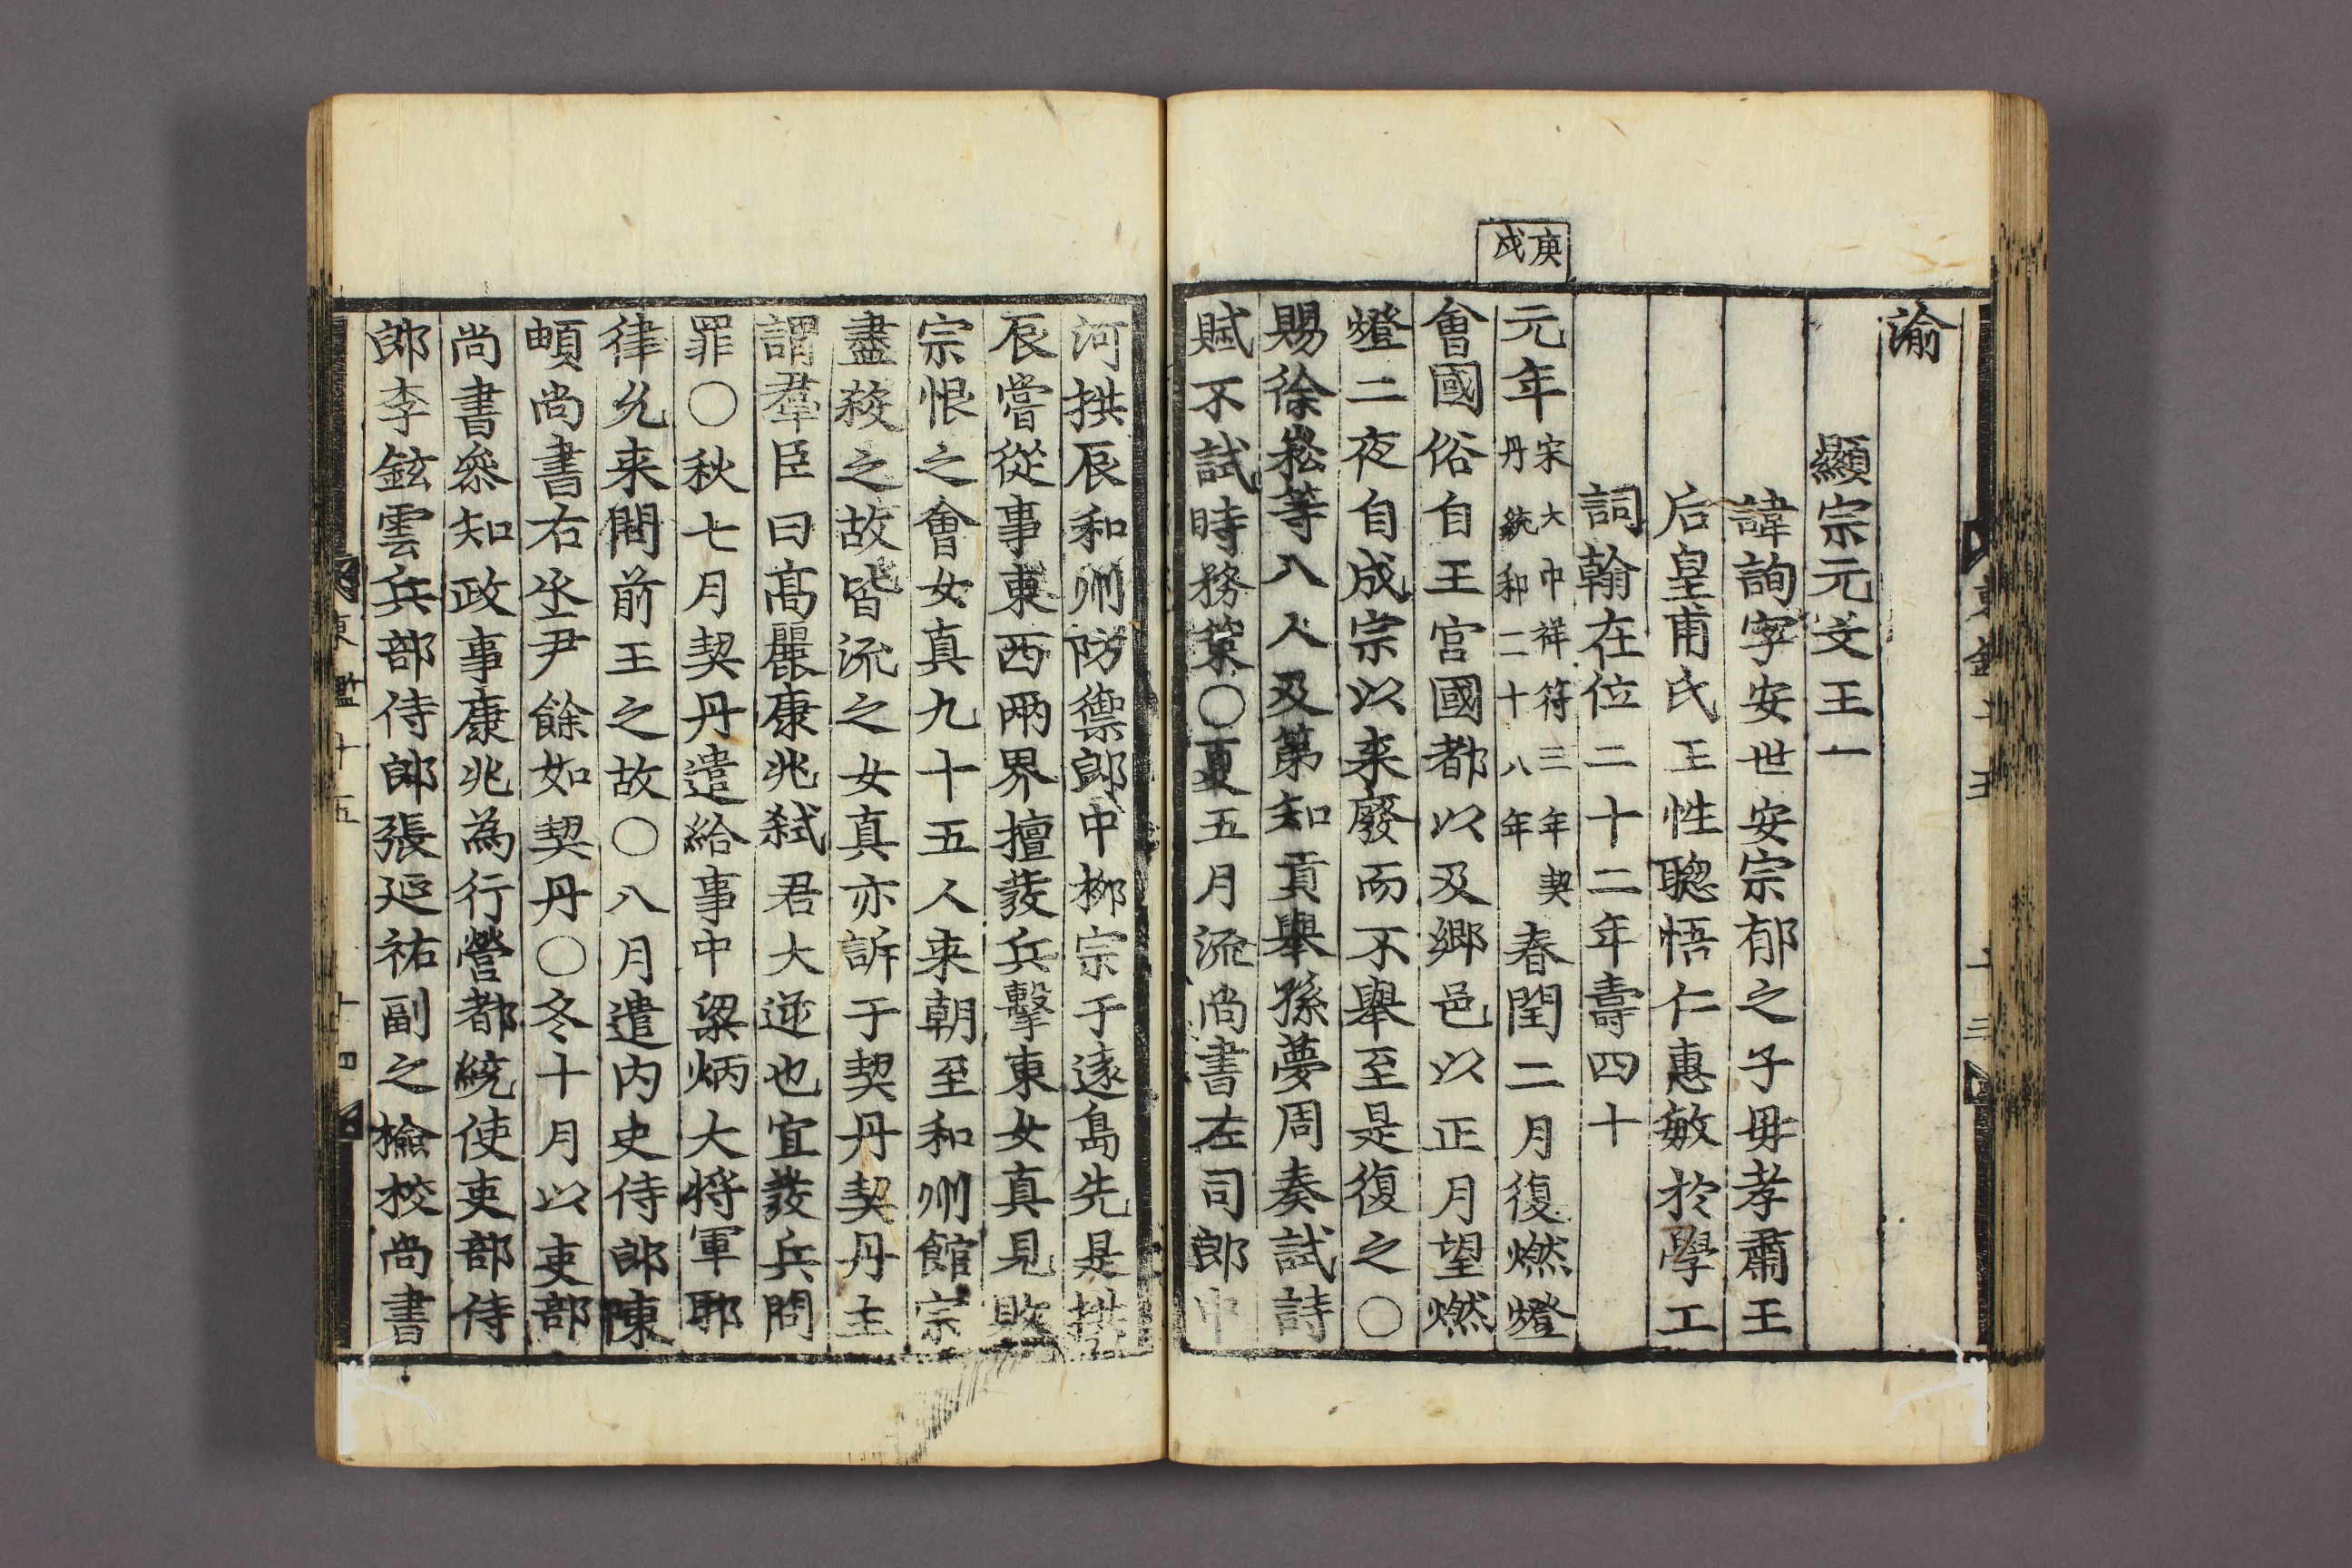 渝
顯宗元文王一
諱詢字安世安宗郁之子毋孝肅王
后皇甫氏王性聰悟仁惠敏於學工
詞翰在位二十二年壽四十
庚戌
元年宋大中祥符三年契丹統和二十八年春閏二月復燃燈
會國俗自王宮國都以及鄉邑以正月望燃
燈二夜自成宗以来廢而不舉至是復之〇
賜徐崧等八人及第知貢舉孫夢周奏試詩
賦不試時務策〇夏五月流尚書左司郎中
河拱辰和州防禦郎中柳宗于遠島先是拱
辰嘗從事東西兩界擅發兵擊東女真見敗
宗恨之會女真九十五人来朝至和州館宗
盡殺之故皆流之女真亦訴于契丹契丹主
謂羣臣曰髙麗康兆弑君大逆也宜發兵問
罪〇秋七月契丹遣給事中梁炳大将軍耶
律允来問前王之故〇八月遣内史侍郎陳
頔尚書右丞尹餘如契丹〇冬十月以吏部
尚書叅知政事康兆為行營都統使吏部侍
郎李鉉雲兵部侍郎張延祐副之檢校尚書
東鑑十五
十四